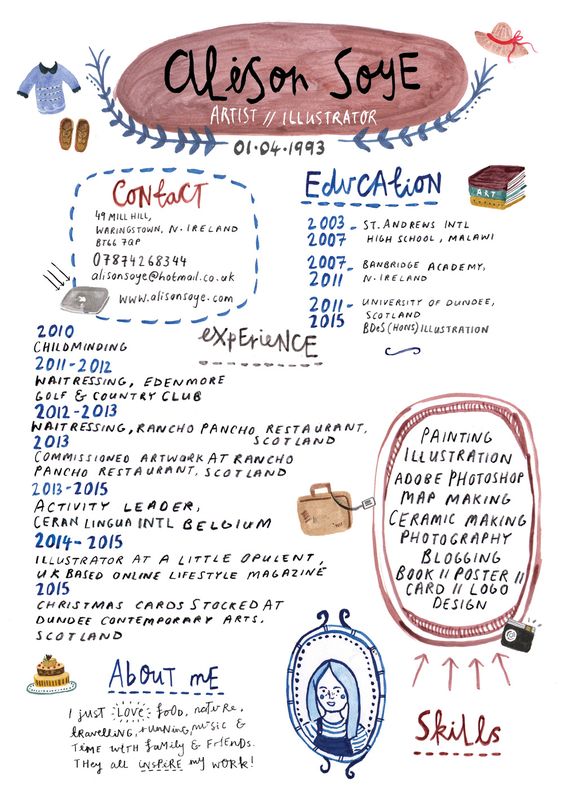 Alison Soye
ARTIST // ILLUSTRATOR
01.04.1993
CONTACT
49 MILL HILL,
WARINGSTOWN, N. IRELAND
BT66 7QP
07874268344
alisonsoye@hotmail.co.uk
www.alisonsoye.com
EDUCATION
2003 - ST. ANDREWS INTL
2007 HIGH SCHOOL, MALAWI
2007 - BANBRIDGE ACADEMY,
2011 N. IRELAND
2011 - UNIVERSITY OF DUNDEE,
2015 SCOTLAND
BDES (HONS) ILLUSTRATION
ART
EXPERIENCE
2010
CHILDMINDING
2011-2012
WAITRESSING, EDENMORE
GOLF & COUNTRY CLUB
2012-2013
WAITRESSING, RANCHO PANCHO RESTAURANT,
SCOTLAND
2013
COMMISSIONED ARTWORK AT RANCHO
PANCHO RESTAURANT, SCOTLAND
2013-2015
ACTIVITY LEADER,
CERAN LINGUA INTL BELGIUM
2014-2015
ILLUSTRATOR AT A LITTLE OPULENT,
UK BASED ONLINE LIFESTYLE MAGAZINE
2015
CHRISTMAS CARDS STOCKED AT
DUNDEE CONTEMPORARY ARTS,
SCOTLAND
PAINTING
ILLUSTRATION
ADOBE PHOTOSHOP
MAP MAKING
CERAMIC MAKING
PHOTOGRAPHY
BLOGGING
BOOK // POSTER //
CARD // LOGO
DESIGN
SKILLS
ABOUT ME
I just LOVE food, nature,
travelling, running, music &
TIME WITH FAMILY & FRIENDS.
THEY all INSPIRE my WORK!